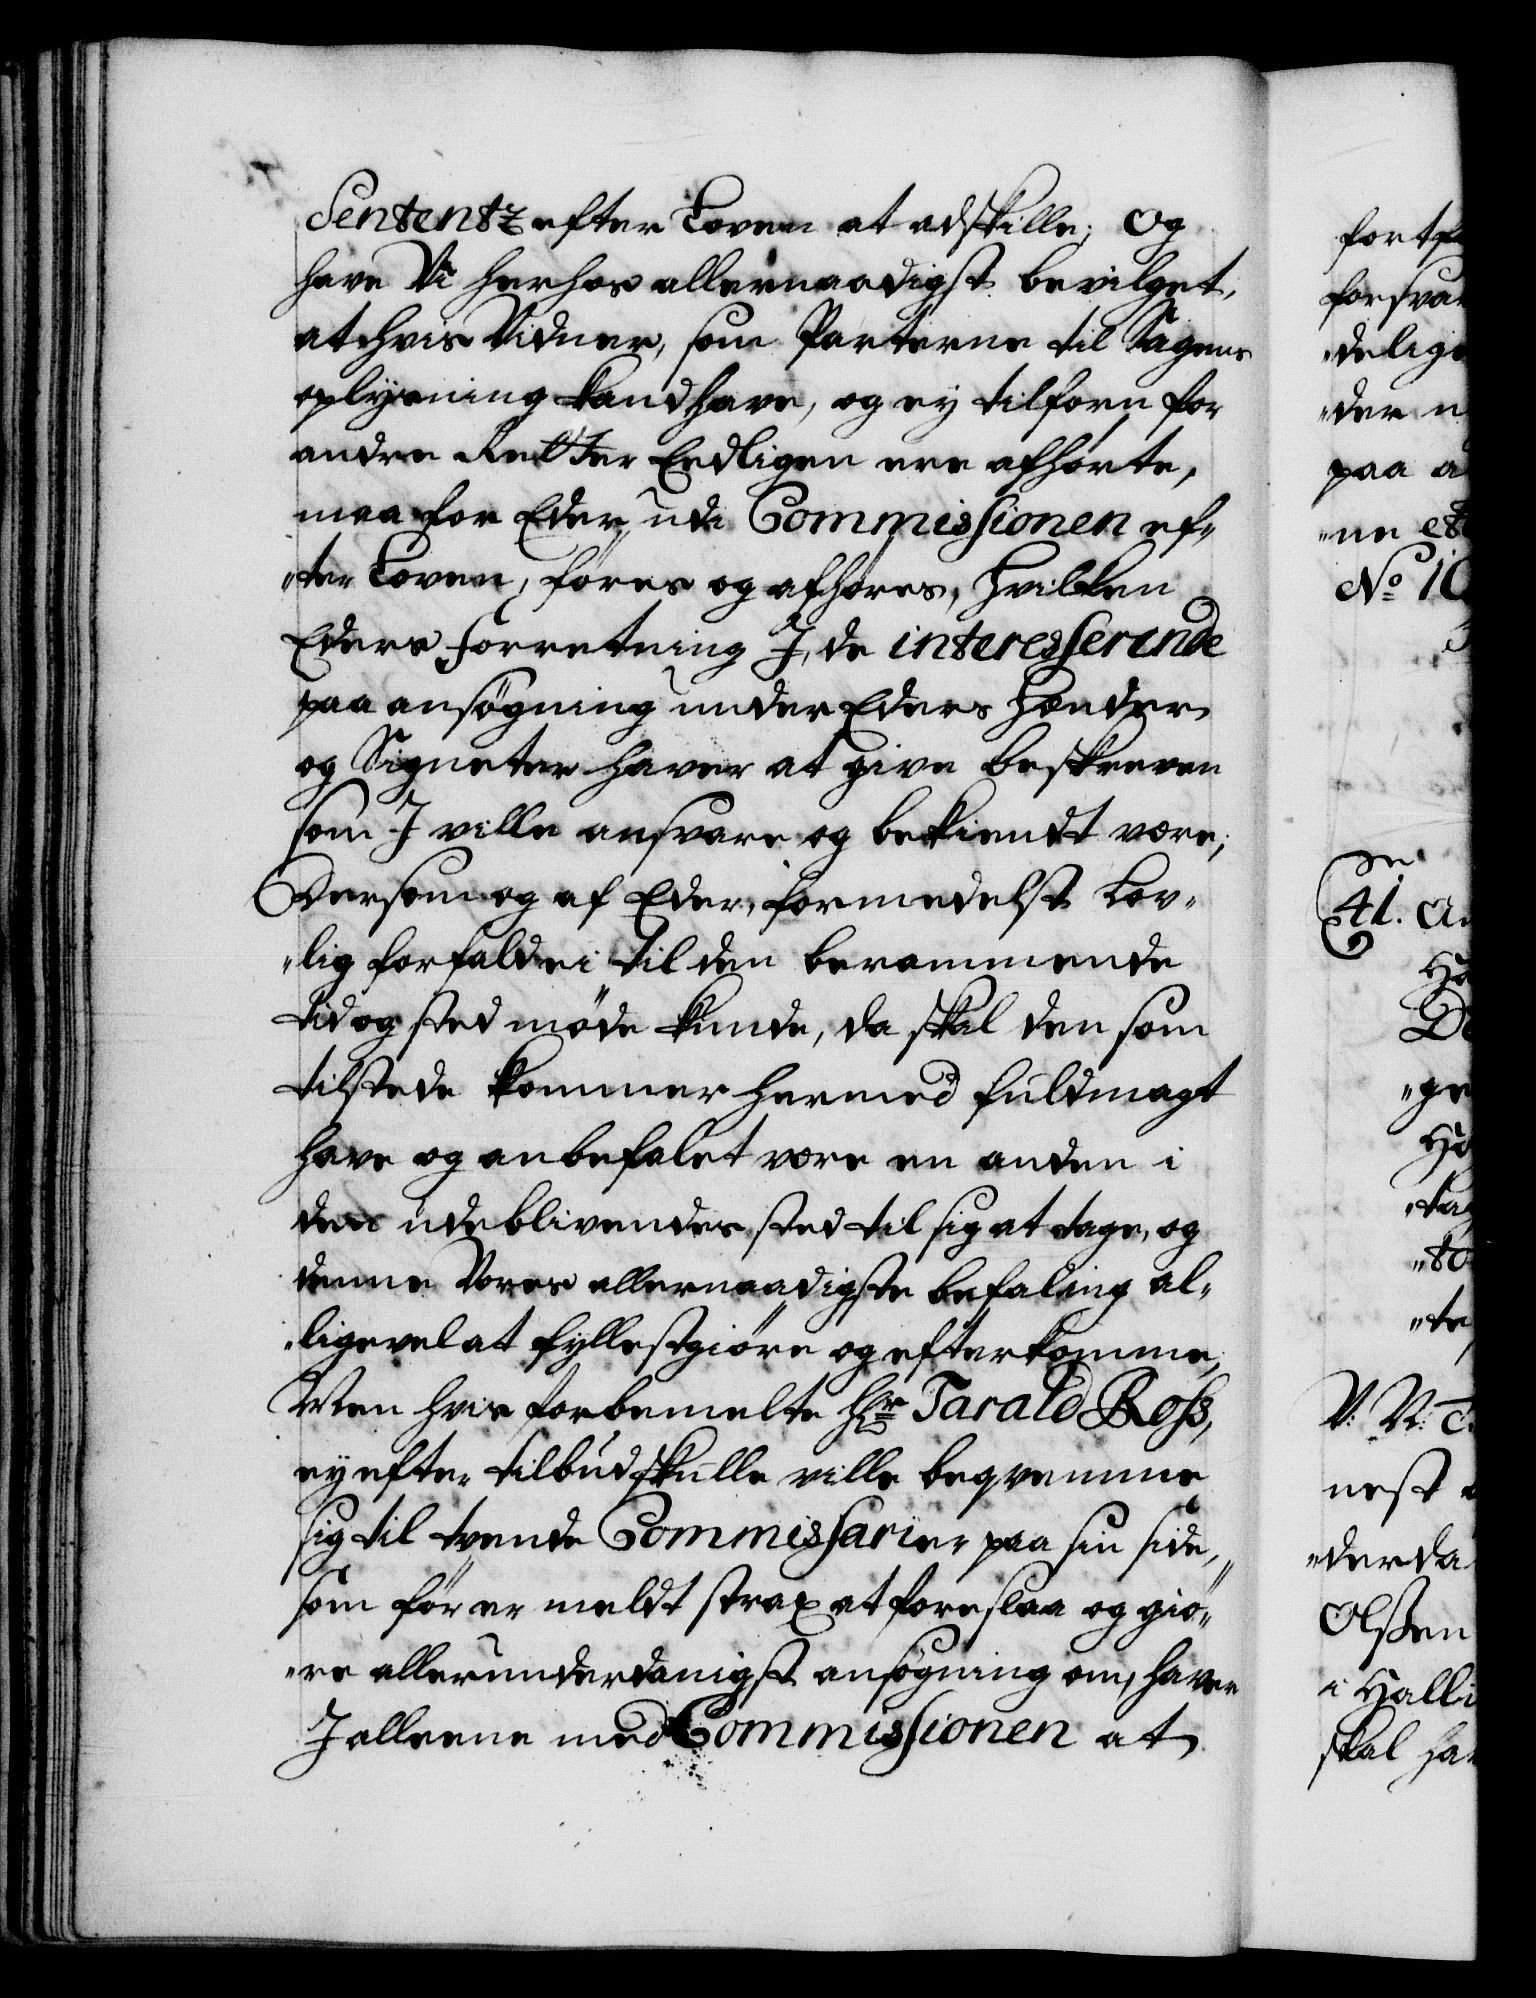 Sententz efter Loven at adskille; Og
have Vi herhos allernaadigst bevilget,
at hvis Vidner, som Parterne til Sagens
oplysning kand have, og ey tilforn for
andre Retter Eedligen ere afhørte,
maa for Eder, udi Commissionen ef„
„ter Loven, føres og afhøres, Hvilken
Eders Forretning I, de interesserende
paa ansøgning under Eders Hænder
og Signeter haver at give beskreven
som I ville ansvare og bekiendt være;
Dersom og af Eder, formedelst Lov„
„lig forfald ei til den berammende
tid og sted møde kunde, da skal den som
tilstede kommer hermed fuldmagt
have og anbefalet være en anden i
den udeblivendes sted til sig at tage, og
denne Vores allernaadigste befaling al„
„ligevel at fyllestgiøre og efterkomme;
Men hvis forbemelte Hr Tarald Ross,
ey efter tilbud skulle ville beqvemme
sig til tvende Commissarier paa sin side,
som før er meldt strax at foreslaa og giø„
„re allerunderdanigst ansøgning om, haver
I alleene med Commissionen at
fort
forsvar
„delig
„der
paa
„ne
No 10
41.
„ge
„tag
„te
nest
„derda
Olssen
i Halli
skal har